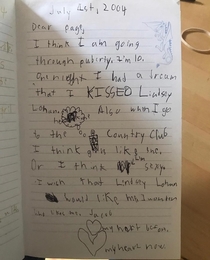 July 1st, 2004
Dear page,
I think I am going
through puberty. I'm 10.
One night I had a dream
that I KISSED Lindsay
Lohan. Also when I go
to the Country Club
I think girls like me.
Or I think I'm sexy.
I wish that Lindsay Lohan
would like me. I wonder
my heart before
my heart now.